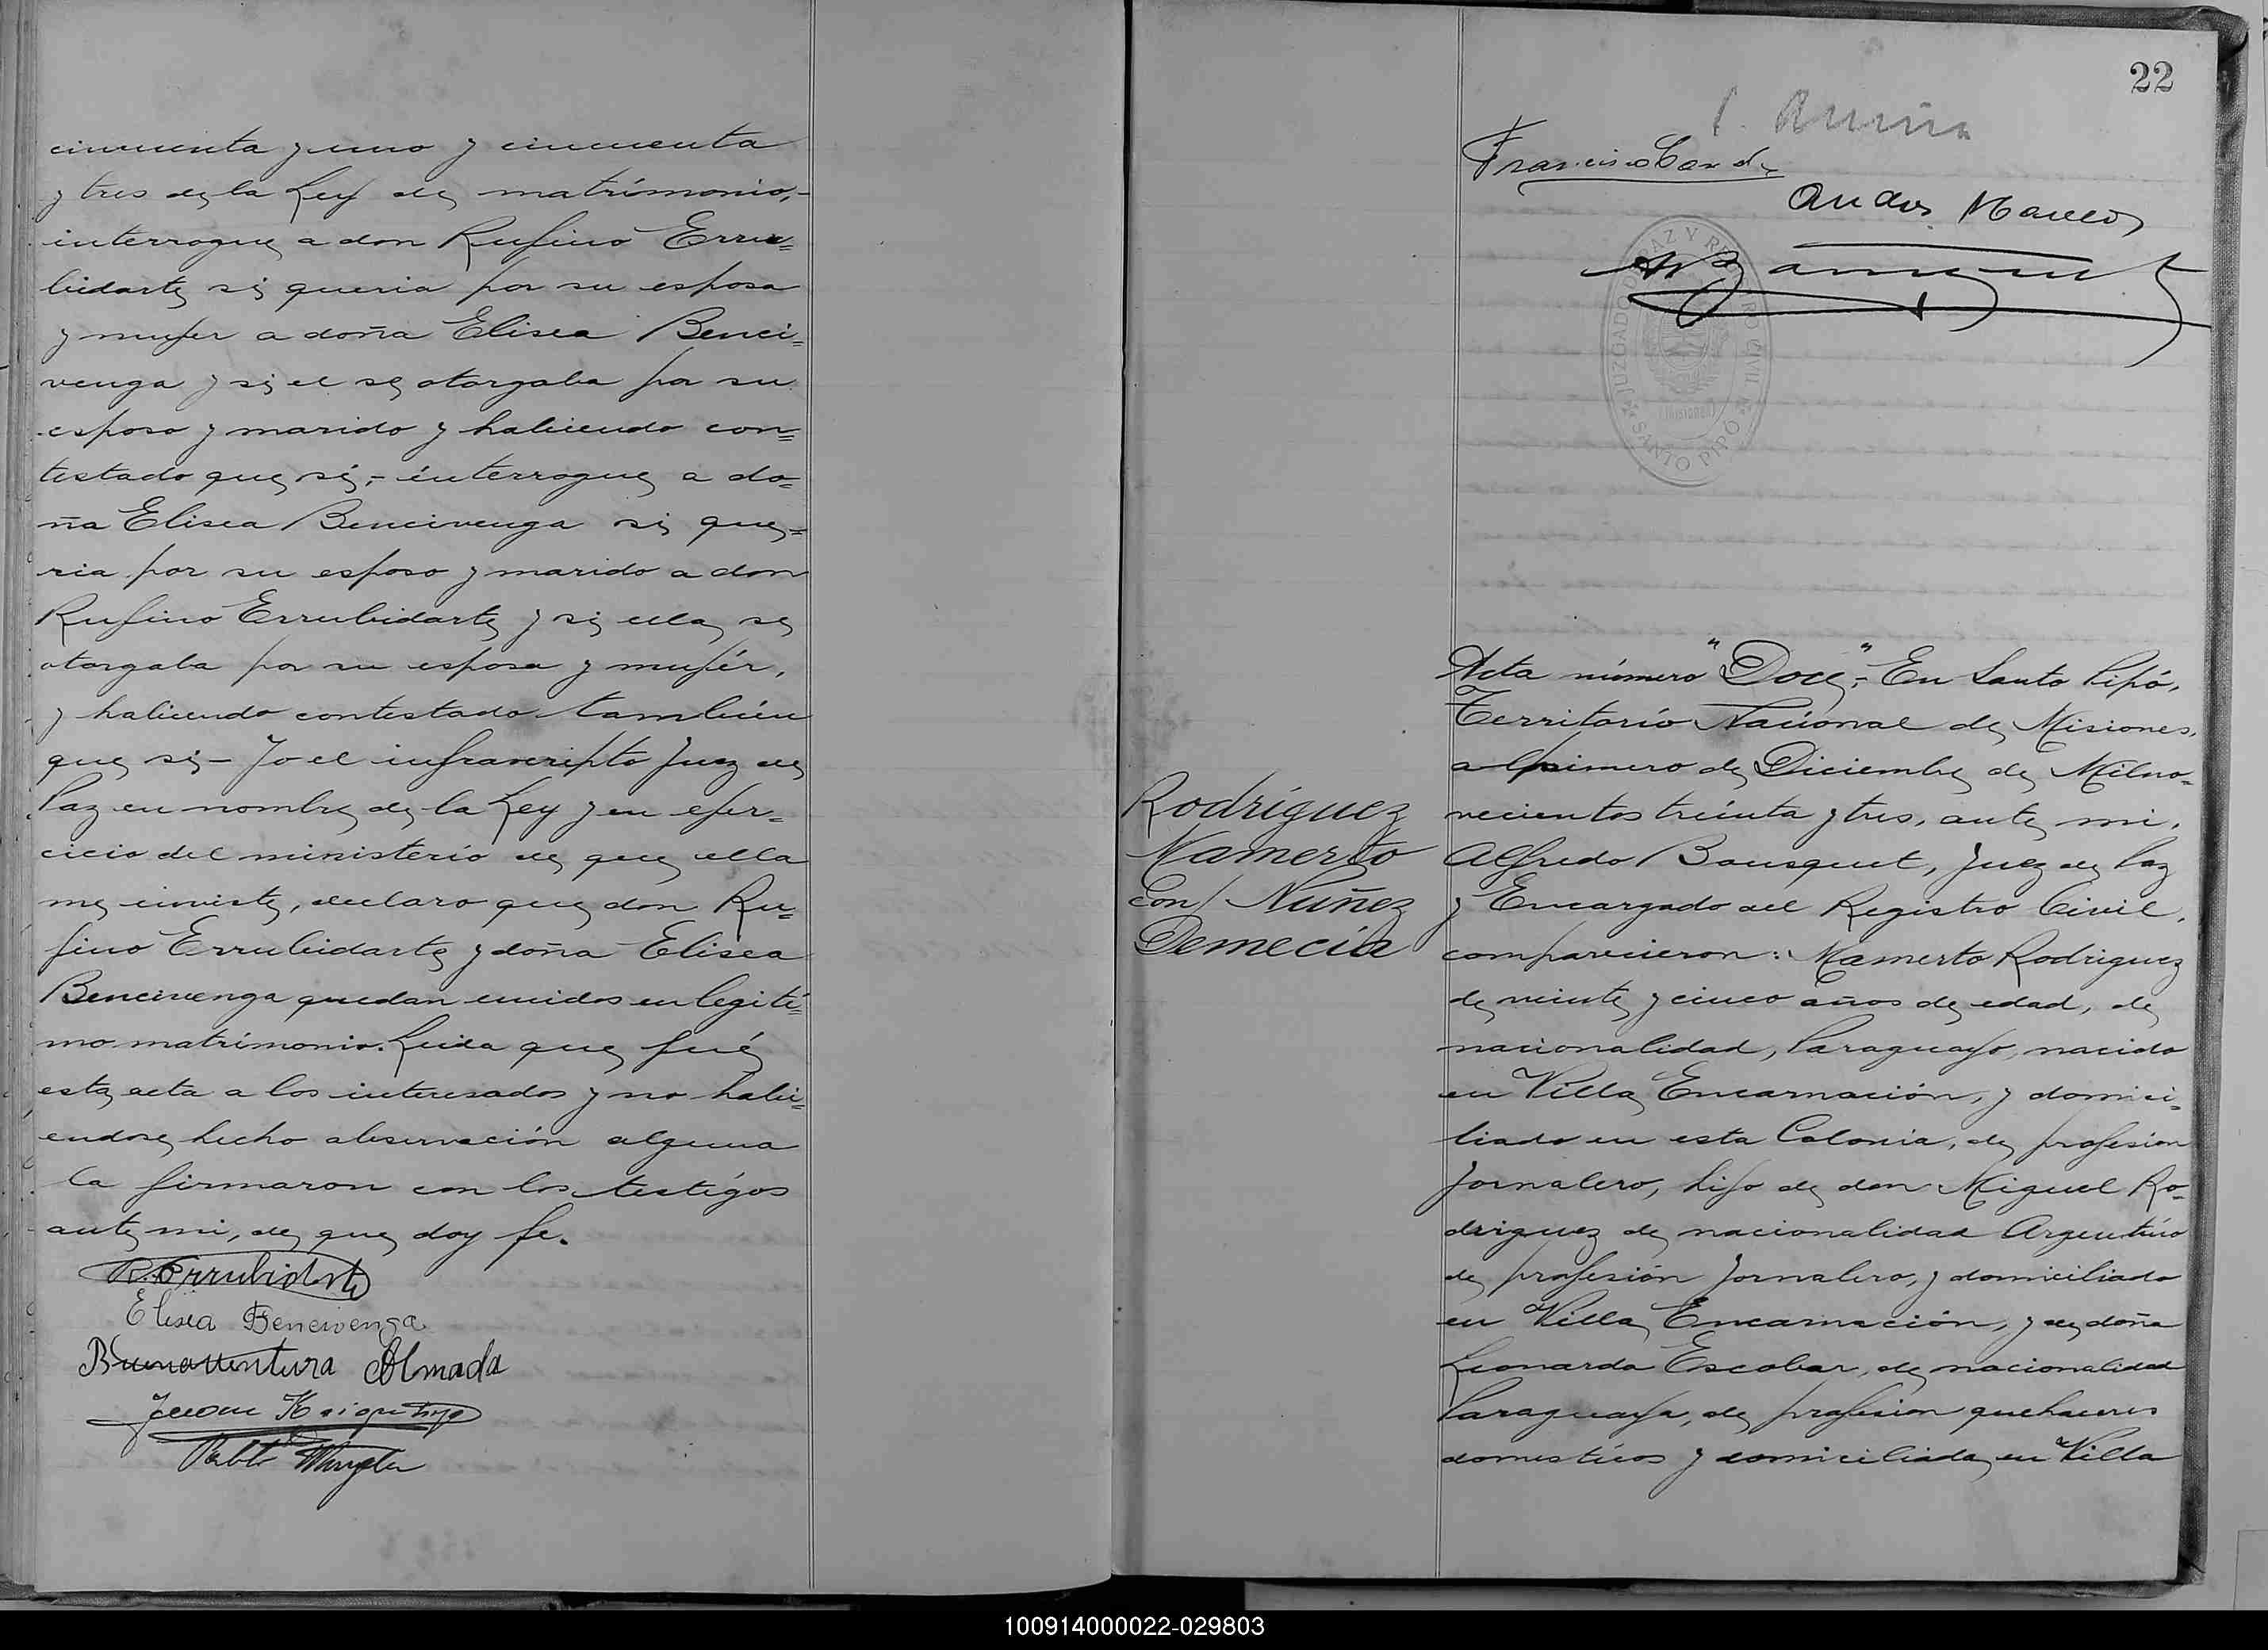 cincuenta y uno y cincuenta
y tres de la Ley de matrimonio,-
interrogue a don Rufino Erru=
bidarte si queria por su esposa
y mujer a doña Elisea Benci=
venga y si el se otorgaba por su
esposo y marido y habiendo con=
testado que si,- interrogue a do=
ña Elisea Bencivenga si que=
ria por su esposo y marido a don
Rufino Errubidarte y si ella se
otorgaba por su esposa y mujér,
y habiendo contestado también
que si- Yo el infrascripto Juez de
Paz en nombre de la Ley y en ejer=
cicio del ministerio de que ella
me inviste, declaro que don Ru=
fino Errubidarte y doña Elisea
Bencivenga quedan unidos en legiti=
mo matrimonio. Leida que fué
esta acta a los interesados y no habi=
endose hecho observación alguna
la firmaron con los testigos
ante mi, de que doy fe.
R. Errubidarte
Elisea Bencivenga
Buenaventura Almada
Pablo
22
Francisco
Andres
JUZGADO DE PAZ Y REGISTRO CIVIL
(Misiones)
SANTO PIPÓ
Rodríguez
Mamerto
con/ Nuñez
Demecia
Acta número "Doce",- En Santo Pipó,
Territorio Nacional de Misiones,
a primero de Diciembre de Milno=
vecientos treinta y tres, ante mi,
Alfredo Bousquet, Juez de Paz
y Encargado del Registro Civil,
comparecieron: Mamerto Rodriguez
de veinte y cinco años de edad, de
nacionalidad, Paraguayo, nacido
en Villa Encarnación, y domici=
liado en esta Colonia, de profesion
Jornalero, hijo de don Miguel Ro=
driguez de nacionalidad Argentino
de profesión Jornalero, y domiciliado
en Villa Encarnación, y de doña
Leonarda Escobar, de nacionalidad
Paraguaya, de profesion quehaceres
domesticos y domiciliada en Villa
100914000022-029803